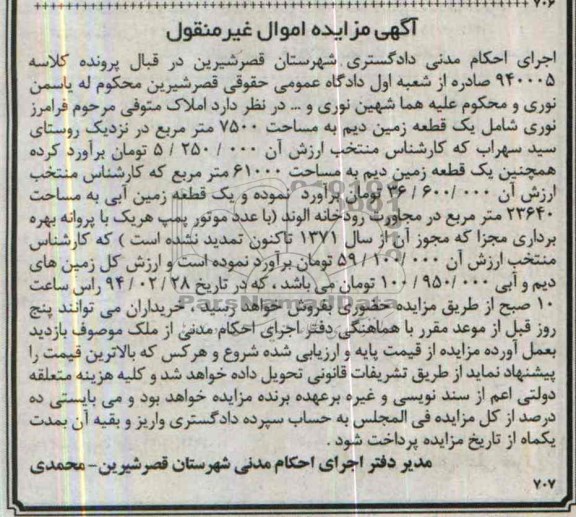 ۷۰۶
آگهی مزایده اموال غیر منقول
اجرای احکام مدنی دادگستری شهرستان قصرشیرین در قبال پرونده کلاسه
۹۴۰۰۰۵ صادره از شعبه اول دادگاه عمومی حقوقی قصرشیرین محکوم له یاسمن
نوری و محکوم علیه هما شهین نوری و ... در نظر دارد املاک متوفی مرحوم فرامرز
نوری شامل یک قطعه زمین دیم به مساحت ۷۵۰۰ متر مربع در نزدیک روستای
سید سهراب که کارشناس منتخب ارزش آن ۰۰۰ / ۲۵۰ / ۵ تومان برآورد کرده
همچنین یک قطعه زمین دیم به مساحت ۶۱۰۰۰ متر مربع که کارشناس منتخب
ارزش آن ۰۰۰ /۶۰۰ / ۳۶ تومان برآورد نموده و یک قطعه زمین آبی به مساحت
۲۳۶۴۰ متر مربع در مجاورت رودخانه الوند (با عدد موتور پمپ هریک با پروانه بهره
برداری مجزا که مجوز آن از سال ۱۳۷۱ تاکنون تمدید نشده است ) که کارشناس
منتخب ارزش آن ۰۰۰ /۱۰۰ / ۵۹ تومان برآورد نموده است و ارزش کل زمین های
دیم و آبی ۰۰۰ /۹۵۰ / ۱۰۰ تومان می باشد ، که در تاریخ ۲۸ /۰۲ / ۹۴ راس ساعت
۱۰ صبح از طریق مزایده حضوری بفروش خواهد رسید ، خریداران می توانند پنج
روز قبل از موعد مقرر با هماهنگی دفتر اجرای احکام مدنی از ملک موصوف بازدید
بعمل آورده مزایده از قیمت پایه و ارزیابی شده شروع و هرکس که بالاترین قیمت را
پیشنهاد نماید از طریق تشریفات قانونی تحویل داده خواهد شد و کلیه هزینه متعلقه
دولتی اعم از سند نویسی و غیره برعهده برنده مزایده خواهد بود و می بایستی ده
درصد از کل مزایده فی المجلس به حساب سپرده دادگستری واریز و بقیه آن بمدت
یکماه از تاریخ مزایده پرداخت شود .
مدیر دفتر اجرای احکام مدنی شهرستان قصرشیرین- محمدی
۷۰۷
ParsNamadData